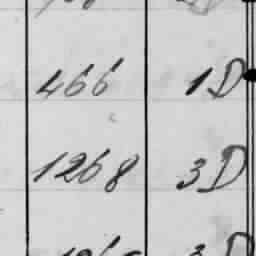 466 1D
1268 3D